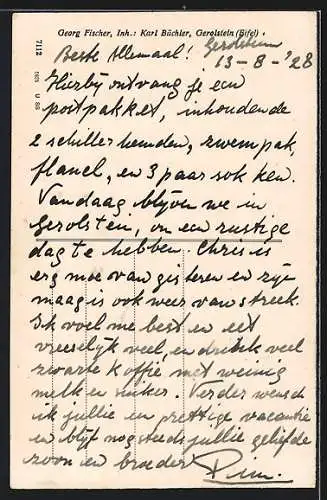 Georg Fischer, Inh.: Karl Büchler, Gerolstein (Eifel)
7112
Beste Allemaal! Gerolstein
13-8-'28
Hierbij ontvang je een
postpakket, inhoudende
2 schillerhemden, zwempak,
flanel, en 3 paar sokken.
Vandaag blijven we in
Gerolstein, om een rustige
dag te hebben. Chris is
erg moe van gisteren en zijn
maag is ook weer van streek.
Ik voel me best en eet
vreeselijk veel, en drink veel
zwarte koffie met weinig
melk en suiker. Verder wensch
ik jullie en prettige vacantie
en blijf nog steeds jullie geliefde
zoon en broeder Pim.